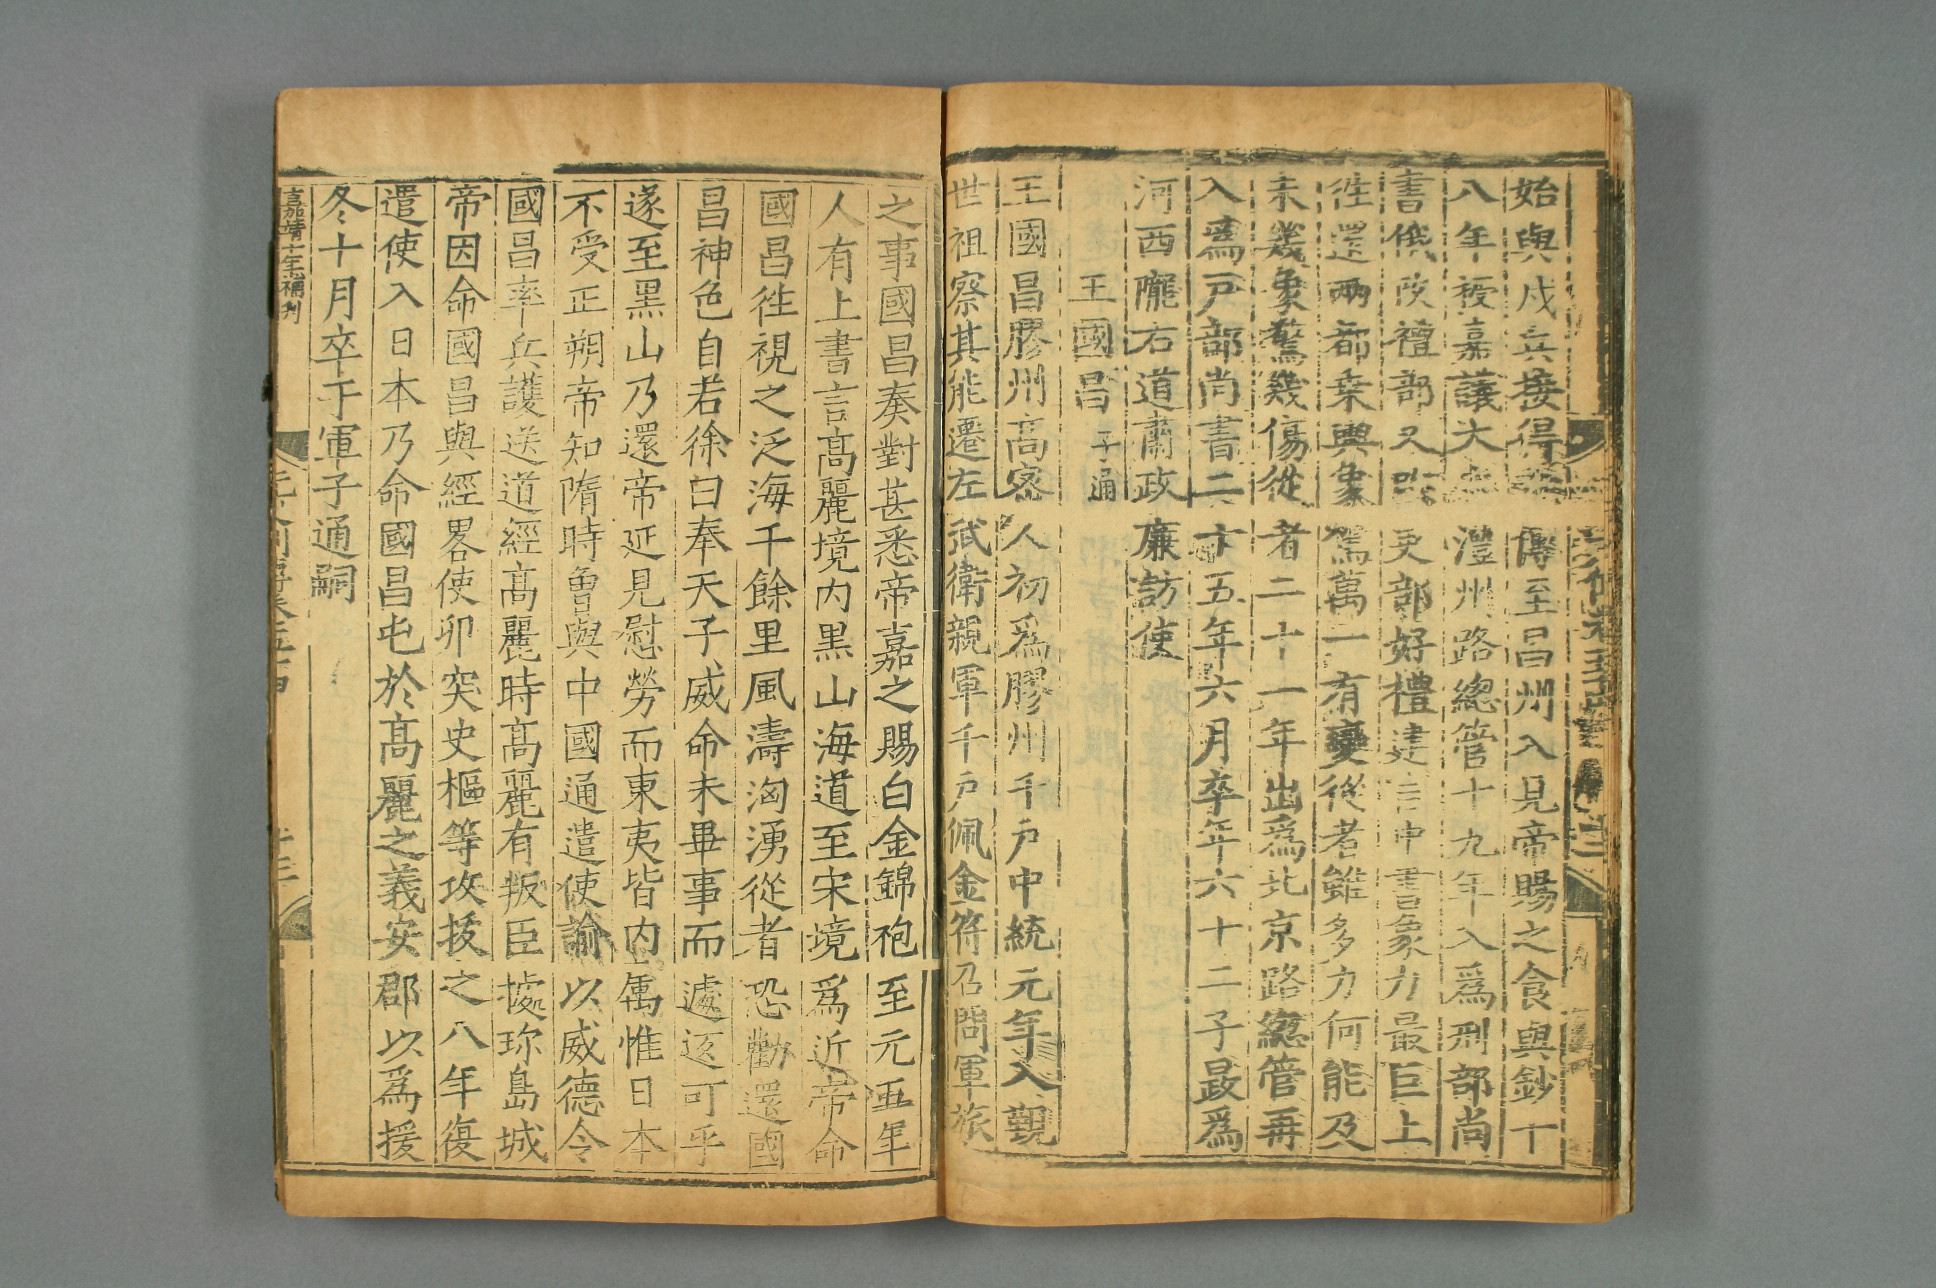 始與戍兵接得
傳至昌州入見帝賜之食與鈔十
八年授嘉議大
澧州路總管十九年入爲刑部尚
書俄改禮部又
吏部好禮建言中書象力最巨上
徃還兩都乗輿象
駕萬一有變從者雖多力何能及
未幾象驚幾傷從者二十一年出爲北京路緫管再
入爲戸部尚書二十五年六月卒年六十二子晸爲
河西隴右道肅政廉訪使
王國昌 子通
王國昌膠州高密人初爲膠州千戸中統元年入覲
世祖察其能遷左武衛親軍千戸佩金符乃問軍旅
之事國昌奏對甚悉帝嘉之賜白金錦袍至元五年
人有上書言高麗境内黒山海道至宋境爲近帝命
國昌徃視之泛海千餘里風濤洶湧從者恐勸還國
昌神色自若徐曰奉天子威命未畢事而遽返可乎
遂至黒山乃還帝延見慰勞而東夷皆内属惟日本
不受正朔帝知隋時曽與中國通遣使諭以威德令
國昌率兵護送道經高麗時高麗有叛臣㨿珎島城
帝因命國昌與經畧使卬突史樞等攻拔之八年復
遣使入日本乃命國昌屯於高麗之義安郡以爲援
冬十月卒于軍子通嗣
嘉靖十年補刊